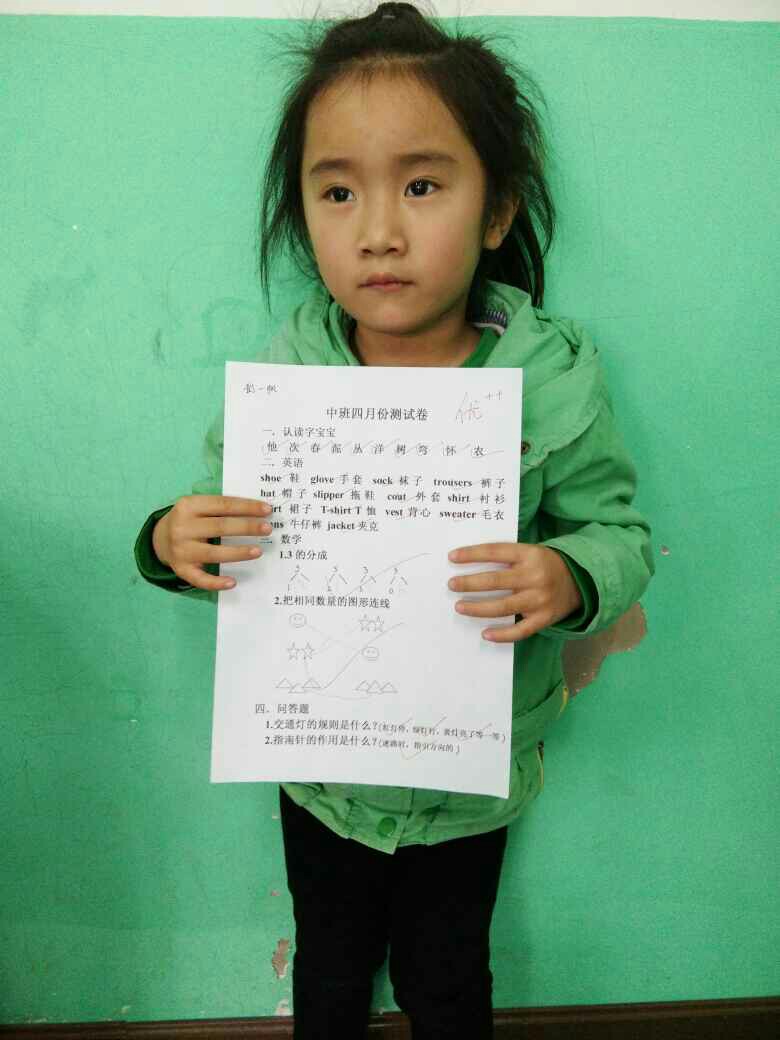 一帆
优++
中班四月份测试卷
一、认读字宝宝
他 次 春 泥 丛 洋 树 弯 怀 农
二、英语
shoe 鞋 glove 手套 sock 袜子 trousers 裤子
hat 帽子 slipper 拖鞋 coat 外套 shirt 衬衫
裙子 T-shirt T 恤 vest 背心 sweater 毛衣
牛仔裤 jacket 夹克
三、数学
1.3 的分成
3 3 3 3
1 2 3 0
2.把相同数量的图形连线
四、问答题
1.交通灯的规则是什么？(红灯停，绿灯行，黄灯亮了等一等)
2.指南针的作用是什么？(迷路时，指引方向的)